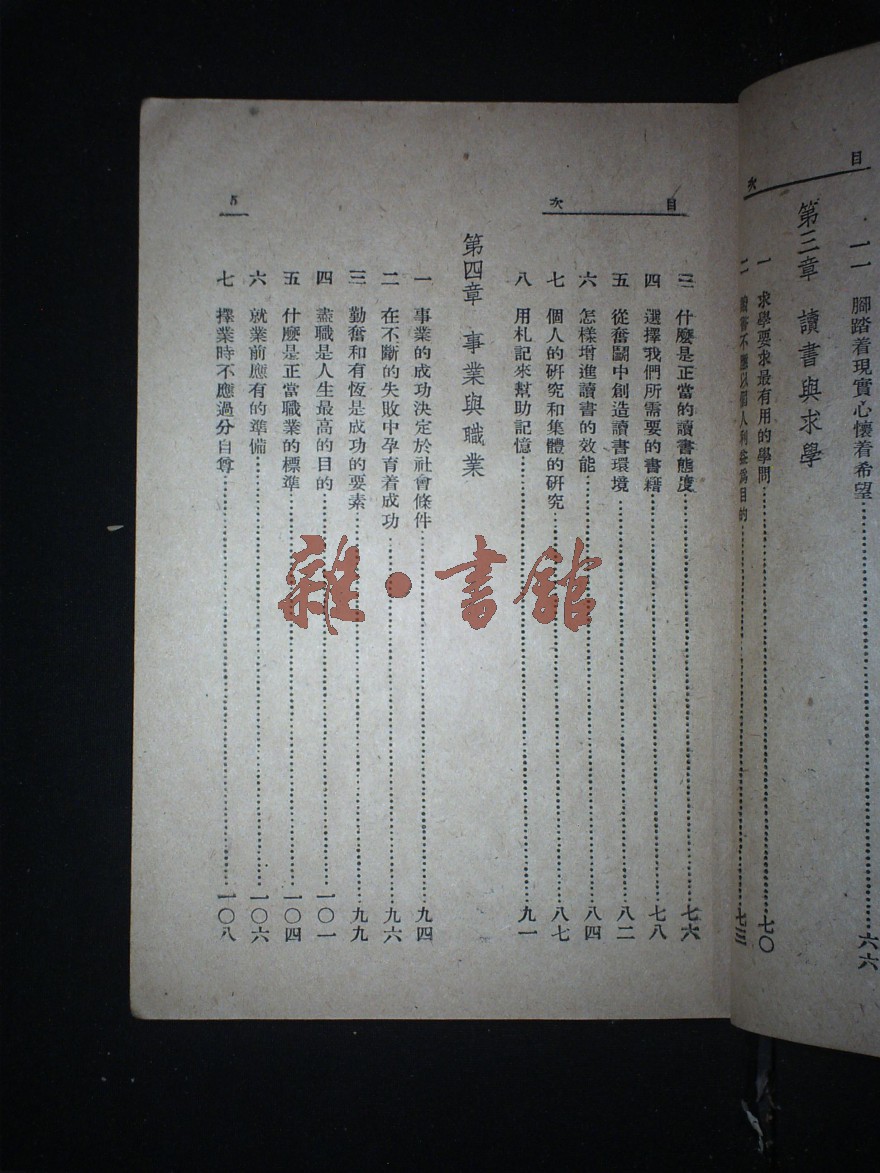 目次
一一 腳踏着現實心懷着希望……六六
第三章 讀書與求學
一 求學要求最有用的學問……七〇
二 讀書不應以個人利益為目的……七三
目次
三 什麼是正當的讀書態度……七六
四 選擇我們所需要的書籍……七八
五 從奮鬭中創造讀書環境……八二
六 怎樣增進讀書的效能……八四
七 個人的研究和集體的研究……八七
八 用札記來幫助記憶……九一
第四章 事業與職業
一 事業的成功決定於社會條件……九四
二 在不斷的失敗中孕育着成功……九六
三 勤奮和有恆是成功的要素……九九
四 盡職是人生最高的目的……一〇一
五 什麼是正當職業的標準……一〇四
六 就業前應有的準備……一〇六
七 擇業時不應過分自尊……一〇八
5
雜·書館